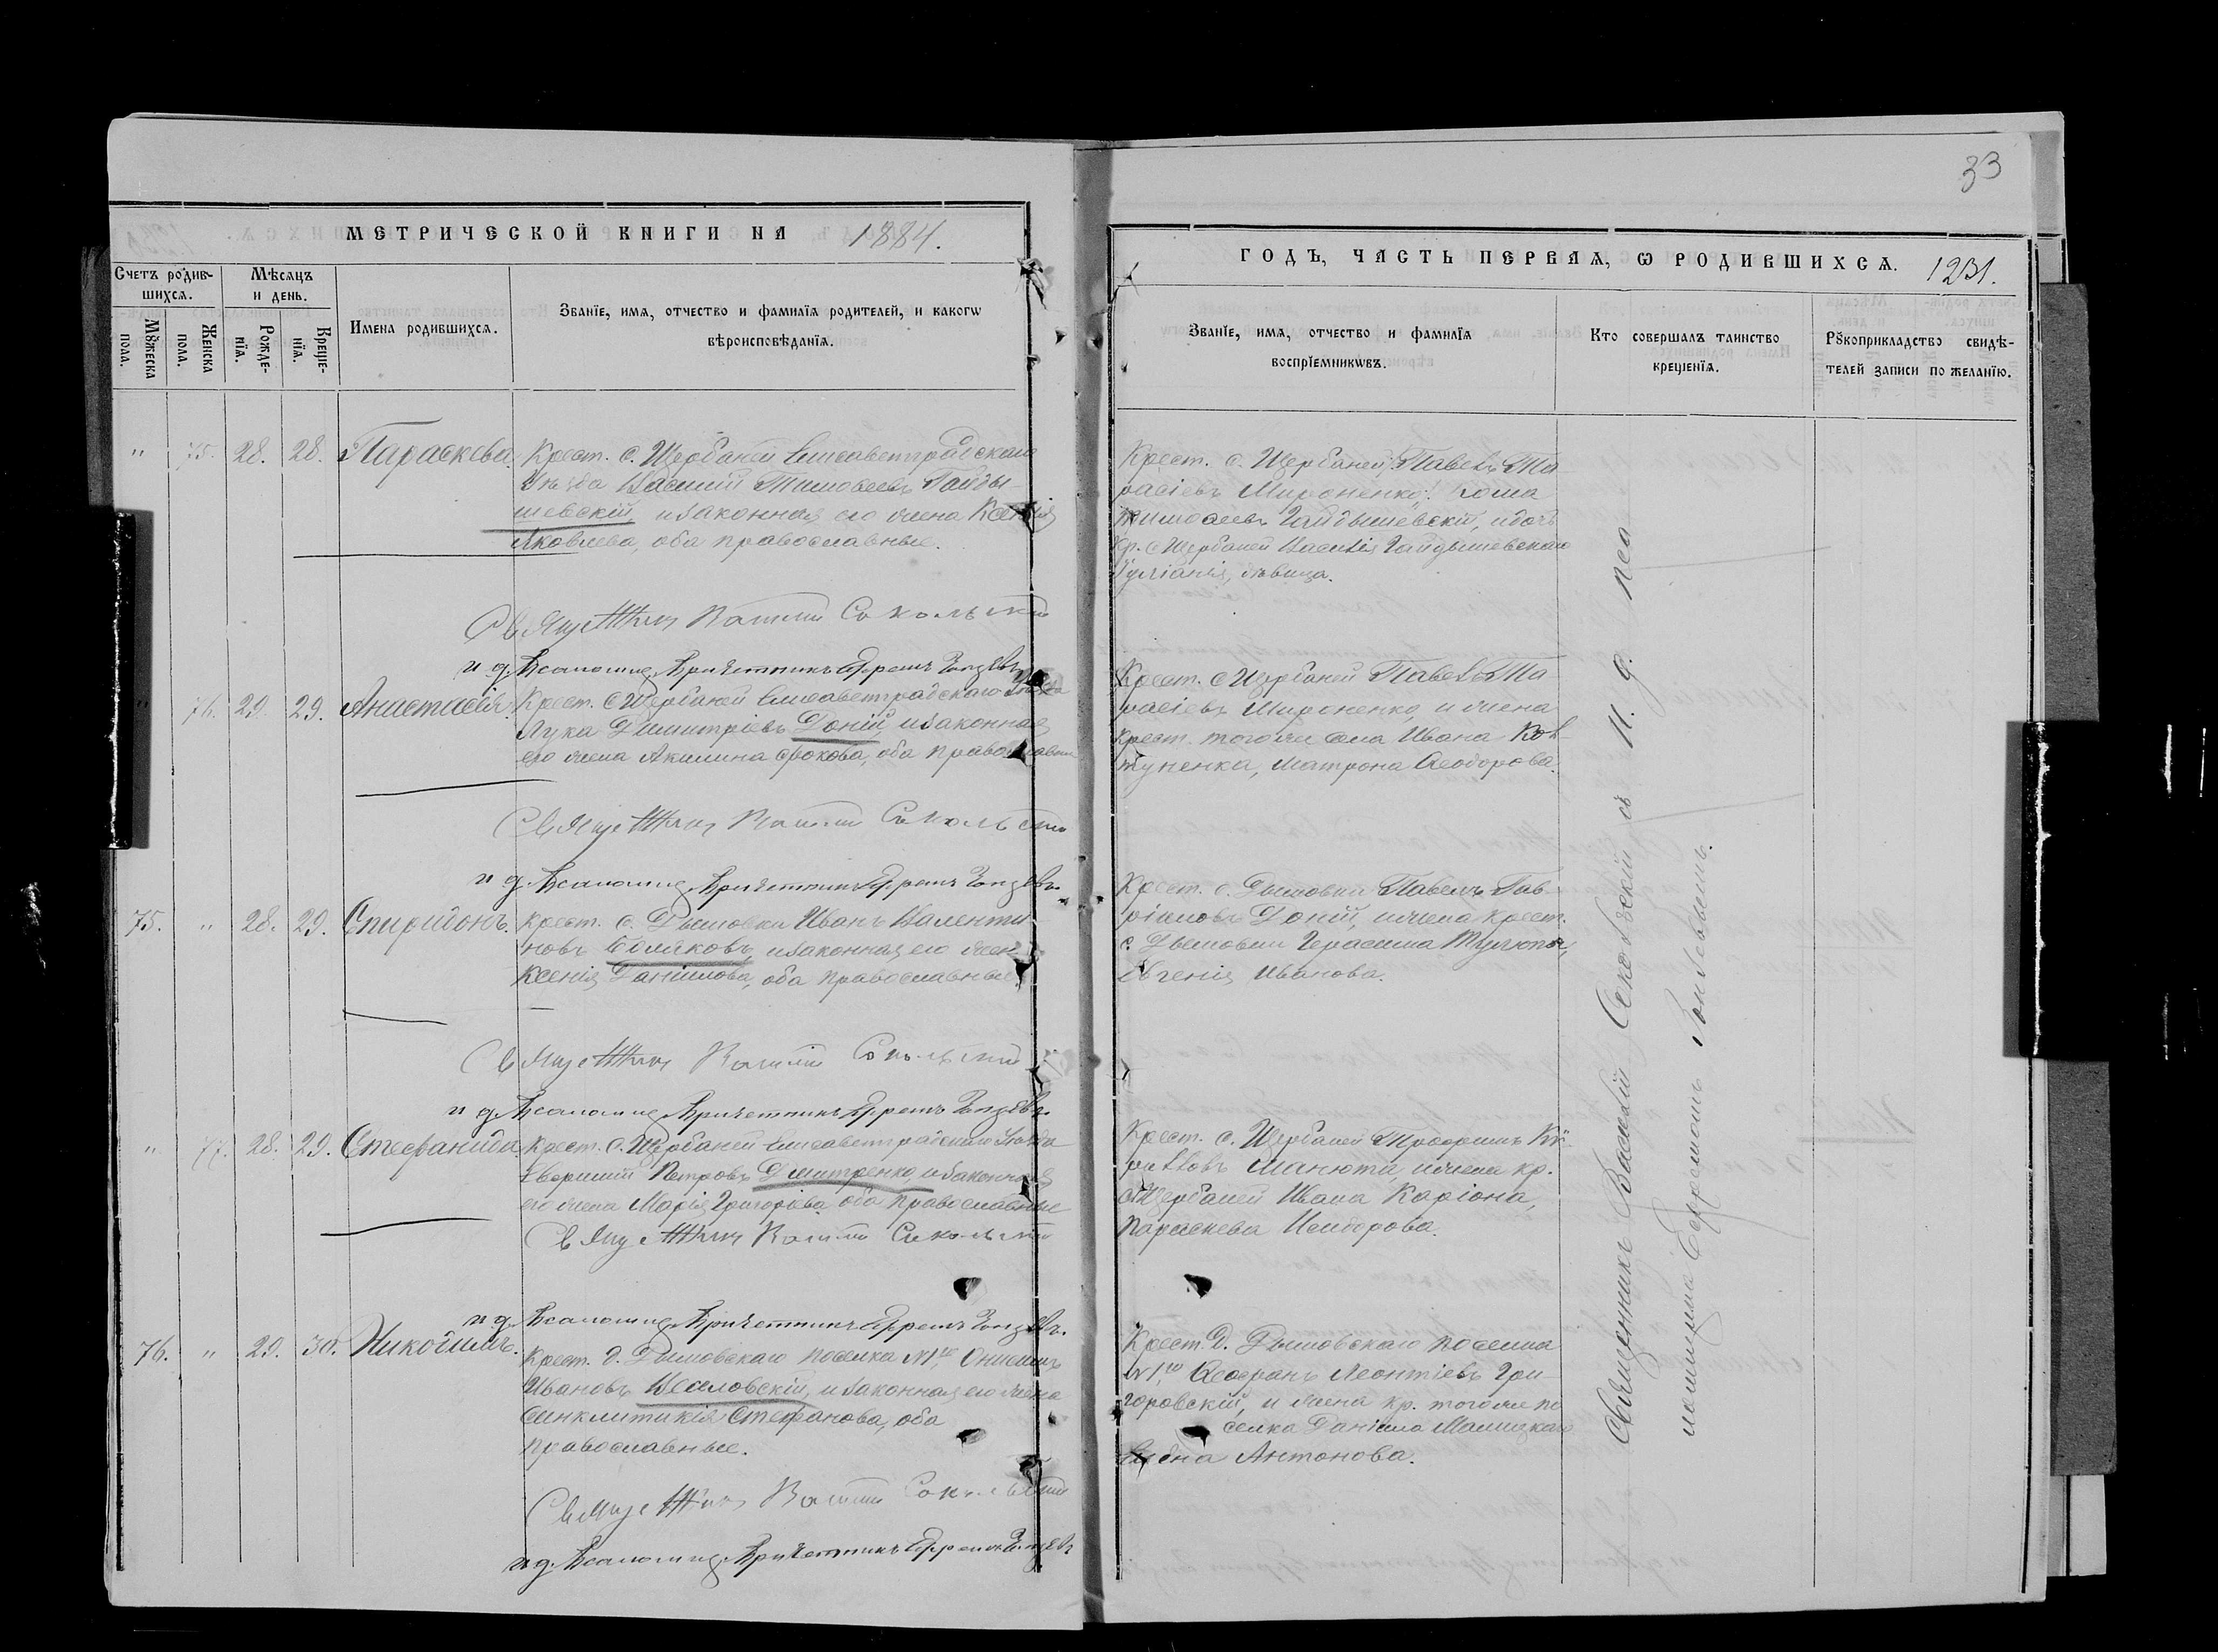 33
МЕТРИЧЕСКОЙ КНИГИ НА 1884.
Счетъ родив-
шихся.
Мѣсяцъ
и день.
Мꙋжеска
пола.
Женска
пола.
Рожде-
нїя.
Креще-
нїя.
Имена родившихся.
Званїе, имя, отчество и фамилїя родителей, и какогѡ
вѣроисповѣданїя.
" 75. 28. 28. Параскева.
Крест. с. Щербаней Елисаветградскаго
Уѣзда Василий Тимоѳеевъ Гайды-
шевскій, и законная его жена Ксенія
Яковлева, оба православные.
Священникъ Василий Сокольскій
и. д. Псаломщ. Причетникъ Ефремъ
" 76. 29. 29. Анастасія.
Крест. с. Щербаней Елисаветградскаго Уѣзда
Лука Димитріевъ Доній, и законная
его жена Акилина Фокова, оба православные
Священникъ Василий Сокольскій
и. д. Псаломщ. Причетникъ Ефремъ
75. " 28. 29. Спиридонъ.
Крест. с. Дымовки Иванъ Валенти-
новъ и законная его жена
Ксенія Даніилова, оба православные.
Священникъ Василий Сокольскій
и. д. Псаломщ. Причетникъ Ефремъ
" 77. 28. 29. Стефанида.
Крест. с. Щербаней Елисаветградскаго Уѣзда
Петровъ Дмитренко, и законная
его жена Марія Григорьева, оба православные
Священникъ Василий Сокольскій
и. д. Псаломщ. Причетникъ Ефремъ
76. " 29. 30. Никодимъ.
Крест. д. Дымовскаго поселка №1го, Онисимъ
Ивановъ Веселовскій, и законная его жена
Синклитикія Стефанова, оба
православные.
Священникъ Василий Сокольскій
и. д. Псаломщ. Причетникъ Ефремъ
ГОДЪ, ЧАСТЬ ПЕРВАЯ, Ѡ РОДИВШИХСЯ. 1231.
Званїе, имя, отчество и фамилїя
воспрїемникѡвъ.
Кто совершалъ таинство
крещенїя.
Рꙋкоприкладство свидѣ-
телей записи по желанїю.
Крест. с. Щербаней: Павелъ Та-
расіевъ Мироненко; Ѳома
Тимоѳеевъ Гайдышевскій, и дочь
кр. с. Щербаней Василія Гайдышевскаго
Іуліанія, дѣвица.
Крест. с. Щербаней Павелъ Та-
расіевъ Мироненко, и жена
крест. того же села Ивана Ков-
туненка, Матрона Ѳеодорова.
Крест. с. Дымовки Павелъ Гав-
ріиловъ Доній, и жена крест.
с. Дымовки Герасима
Евгенія Иванова.
Крест. с. Щербаней Трофимъ Ки-
рилловъ Манюта, и жена кр.
с. Щербаней Ивана Каріона,
Параскева Исидорова.
Крест. д. Дымовскаго поселка
№1,го Ѳеофанъ Леонтіевъ Гри-
горовскій, и жена кр. того же по-
селка Даніила Малицкаго
Елена Антонова.
Священникъ Василій Сокольскій съ и. д. пса-
ломщика Ефремомъ